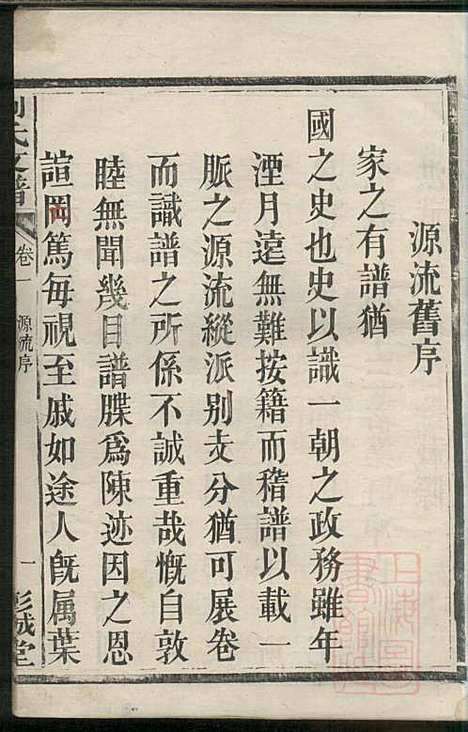 源流舊序
家之有譜猶
國之史也史以識一朝之政務雖年
湮月遠無難按籍而稽譜以載一
脈之源流縱派别支分猶可展卷
而識譜之所係不誠重哉慨自敦
睦無聞幾目譜牒爲陳迹因之恩
諠罔篤每視至戚如途人旣属葉
氏支譜
卷一
源流序
一
彭城堂
上海圖書館藏